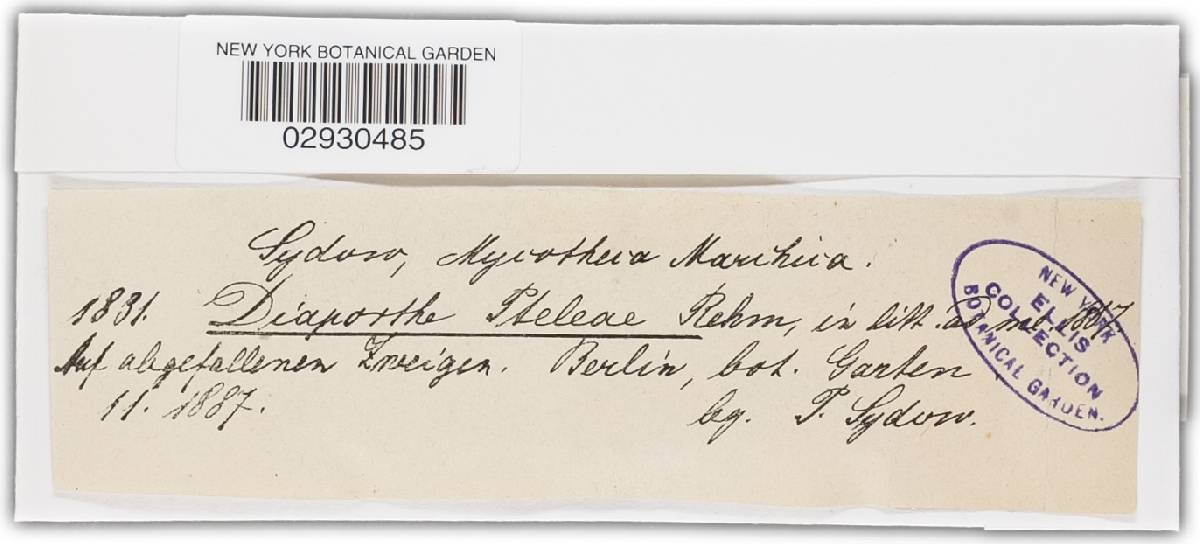 NEW YORK BOTANICAL GARDEN
02930485
Sydow, Mycotheca Marchica.
1831. Diaporthe Pteleae Rehm, in litt. ad me. 1887
Auf abgefallenen Zweigen. Berlin, bot. Garten
11. 1887. lg. P. Sydow.
NEW YORK
ELLIS
COLLECTION
BOTANICAL GARDEN.